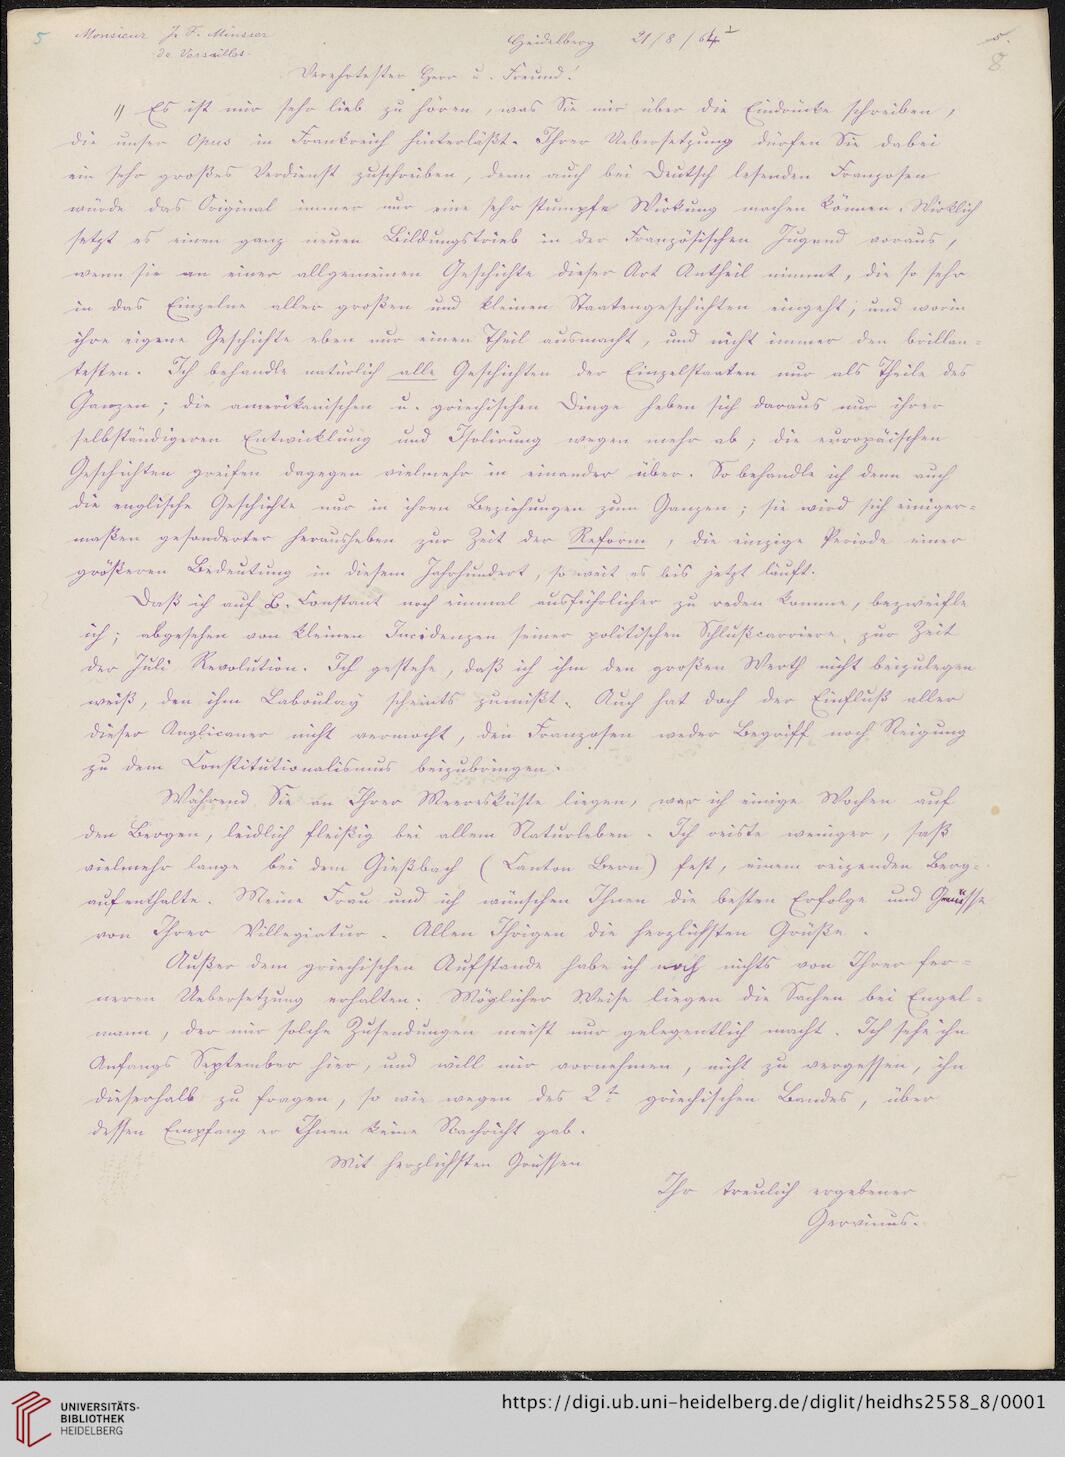 5
Monsieur J. F. Minsser
de Versailles.
Heidelberg 21/8/64
8
Verehrtester Herr u. Freund!
1) Es ist mir sehr lieb zu hören, was Sie mir über die Eindrücke schreiben,
die unser Opus in Frankreich hinterläßt. Ihrer Uebersetzung dürfen Sie dabei
ein sehr großes Verdienst zuschreiben, denn auch bei Deutsch lesenden Franzosen
würde das Original immer nur eine sehr stumpfe Wirkung machen können. Wirklich
setzt es einen ganz neuen Bildungstrieb in der Französischen Jugend voraus,
wenn sie an einer allgemeinen Geschichte dieser Art Antheil nimmt, die so sehr
in das Einzelne aller großen und kleinen Staatengeschichten eingeht; und worin
ihre eigene Geschichte eben nur einen Theil ausmacht, und nicht immer den brillan-
testen. Ich behandle natürlich alle Geschichten der Einzelstaaten nur als Theile des
Ganzen; die amerikanischen u. griechischen Dinge heben sich daraus nur ihrer
selbständigeren Entwicklung und Isolirung wegen mehr ab; die europäischen
Geschichten greifen dagegen vielmehr in einander über. So behandle ich denn auch
die englische Geschichte nur in ihren Beziehungen zum Ganzen; sie wird sich einiger-
maßen gesonderter herausheben zur Zeit der Reform, die einzige Periode einer
größeren Bedeutung in diesem Jahrhundert, so weit es bis jetzt läuft.
Daß ich auf B. Constant noch einmal ausführlicher zu reden komme, bezweifle
ich; abgesehen von kleinen Incidenzen seiner politischen Schlußcarriere zur Zeit
der Juli Revolution. Ich gestehe, daß ich ihm den großen Werth nicht beizulegen
weiß, den ihm Laboulay scheints zumißt. Auch hat doch der Einfluß aller
dieser Anglicaner nicht vermocht, den Franzosen weder Begriff noch Neigung
zu dem Constitutionalismus beizubringen.
Während Sie an Ihrer Meeresküste liegen, war ich einige Wochen auf
den Bergen, leidlich fleißig bei allem Naturleben. Ich reiste weniger, saß
vielmehr lange bei dem Gießbach (Canton Bern) fest, einem reizenden Berg-
aufenthalte. Meine Frau und ich wünschen Ihnen die besten Erfolge und Genüsse
von Ihrer Villegiatur. Allen Ihrigen die herzlichsten Grüße.
Außer dem griechischen Aufstande habe ich noch nichts von Ihrer fer-
neren Uebersetzung erhalten. Möglicher Weise liegen die Sachen bei Engel-
mann, der mir solche Zusendungen meist nur gelegentlich macht. Ich sehe ihn
Anfangs September hier, und will mir vornehmen, nicht zu vergessen, ihn
dieserhalb zu fragen, so wie wegen des 2t. griechischen Bandes, über
dessen Empfang er Ihnen keine Nachricht gab.
Mit herzlichsten Grüssen
Ihr treulich ergebener
Gervinus.
UNIVERSITÄTS-
BIBLIOTHEK
HEIDELBERG
https://digi.ub.uni-heidelberg.de/diglit/heidhs2558_8/0001